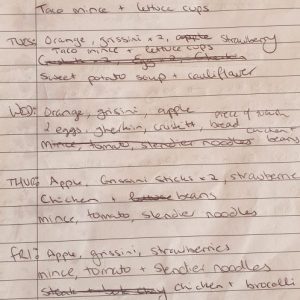 Taco mince + lettuce cups
TUES: Orange, grissini x 2, apple strawberry
Taco mince + lettuce cups
Crusts x 2, Egg x 2, Gherkin
Sweet potato soup + cauliflower
WED: Orange, grisini, apple piece of
2 eggs, gherkin, bead chicken +
Mince, tomato, slendier noodles beans
THUG: Apple, Grissini sticks x 2, strawberrie
Chicken + beans
mince, tomato, slendier noodles
FRI: Apple, grissini, strawberries
mince, tomato + slendier noodles
Steak + bok choy chicken + brocolli